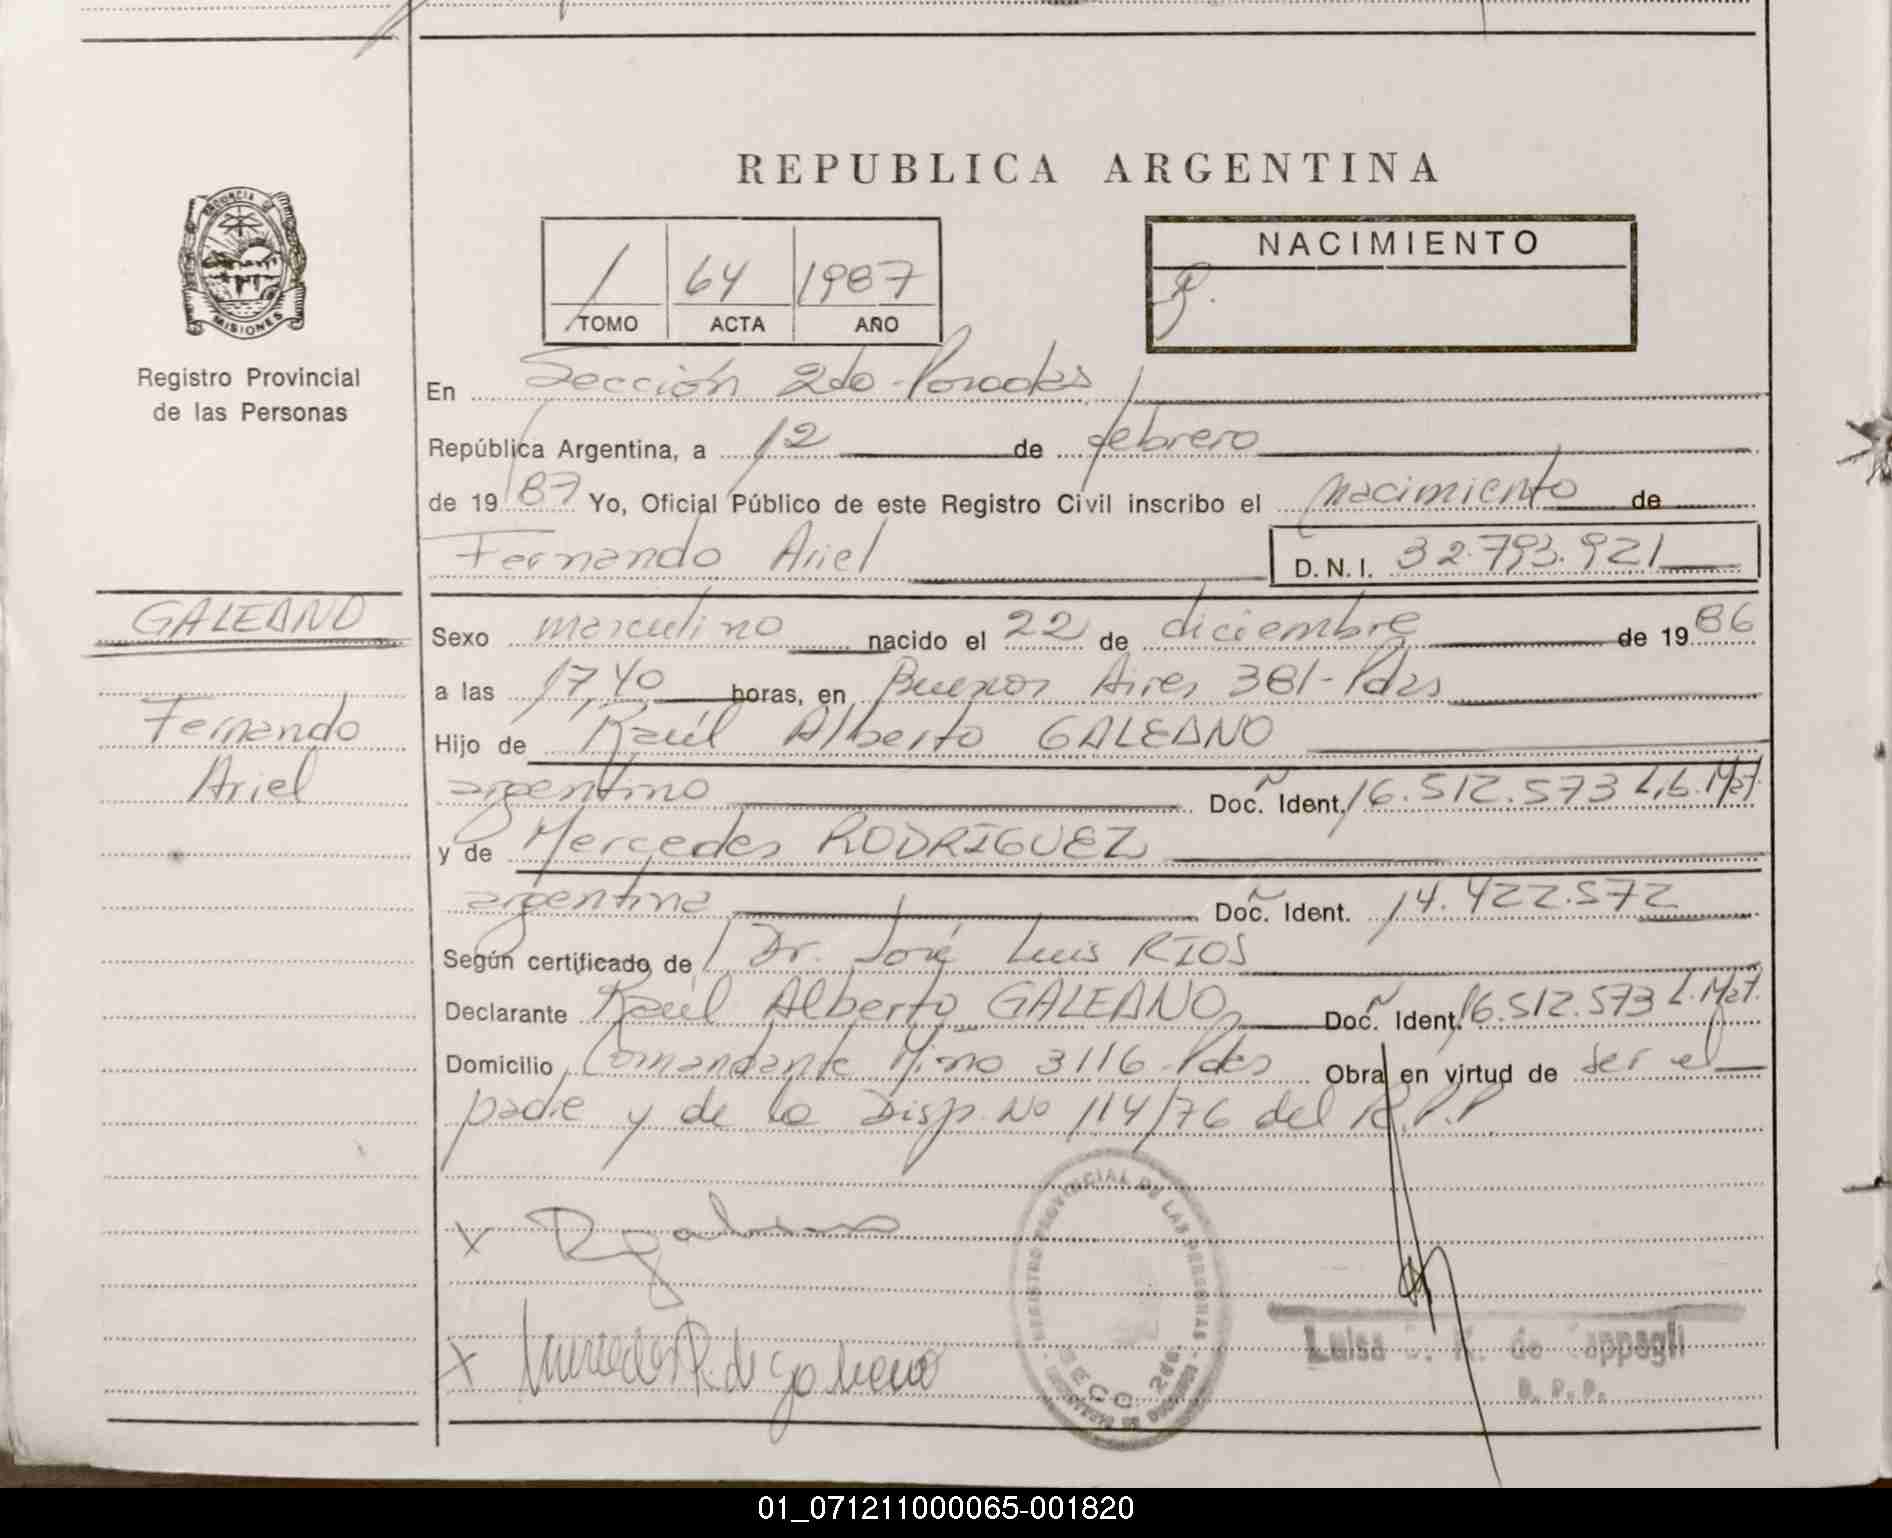 REPUBLICA ARGENTINA
PROVINCIA
MISIONES
Registro Provincial
de las Personas
1 64 1987
TOMO ACTA AÑO
NACIMIENTO
En Sección 2do - Posadas
República Argentina, a 12 de febrero
de 1987 Yo, Oficial Público de este Registro Civil inscribo el nacimiento de
Fernando Ariel D.N.I. 32.793.921
GALEANO
Fernando
Ariel
Sexo masculino nacido el 22 de diciembre de 1986
a las 17,40 horas, en Buenos Aires 381 - Pdas
Hijo de Raúl Alberto GALEANO
argentino Doc. Ident. 16.512.573 L.b.Mat.
y de Mercedes RODRIGUEZ
argentina Doc. Ident. 14.422.572
Según certificado de Dr. José Luis RIOS
Declarante Raúl Alberto GALEANO Doc. Ident. 16.512.573 L.Mat.
Domicilio Comandante Miño 3116 - Pdas Obra en virtud de ser el
padre y de la Disp. No 114/76 del R.P.P
x
x Mercedes R. de galeano
REGISTRO PROVINCIAL DE LAS PERSONAS
SECC. 2da.
Luisa de Cappagli
01_071211000065-001820